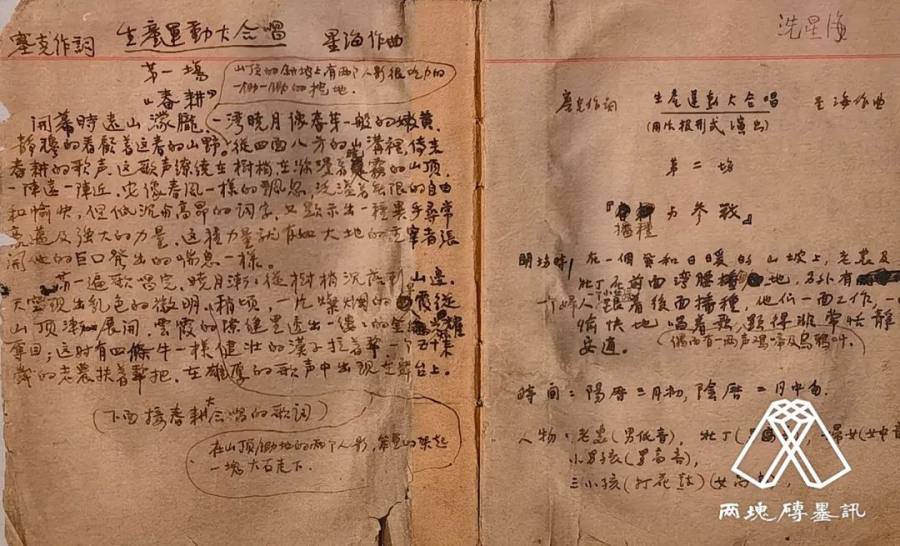 塞克作詞 生產運動大合唱 星海作曲
第一場
"春耕"
山頂的斜坡上有兩个人影很吃力的
一鋤一鋤的挖地。
開幕時遠山濛朧，一湾曉月像春芽一般的嫩黄，
靜穆的看顧着这春的山野。從四面八方的山溝裡，傳来
春耕的歌声。这歌声繚繞在樹梢，在瀰漫着霧的山頂，
一陣遠一陣近，宛像春風一樣的飄忽，洗溢着無限的自由
和愉快，但低沉与高昂的詞句，又顯示出一種異乎尋常
及强大的力量，这種力量就有如大地的主宰者張
開他的巨口發出的喘息一樣。
第一遍歌唱完，曉月漸漸從樹梢沉落到山边，
天空现出乳色的微明，稍頃，一片燦爛的霞從
山頂漸漸展開，雲霞的隙縫里透出一縷一縷的
；这时有四條牛一樣健壯的漢子拉着犂，一个五十来
歲的老農扶着犂把，在雄厚的歌声中出现在舞台上。
（下面接春耕大合唱的歌詞）
在山頂鋤地的兩个人影，
一塊大石走下。
冼星海
塞克作詞 生產運動大合唱 星海作曲
（用活报形式演出）
第二場
『播種与參戰』
開場時，在一個風和日暖的山坡上，老農及
壯丁在前面彎腰 地，另外有
个婦人跟着後面播種，他们一面工作，一
愉快地唱着歌，顯得非常恬靜
安適。（偶而有一两声鸡啼及乌鴉叫。）
時间：陽曆三月初，陰曆二月中旬
人物：老農（男低音），壯丁（男 ），婦女（女中音
小男孩（男高音），
三小孩（打花鼓）（女高
两塊磚墨訊